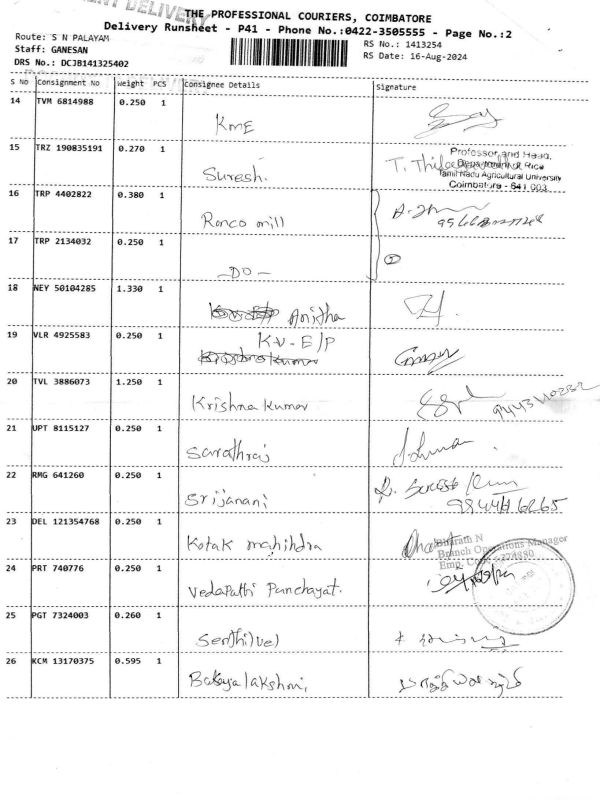 DELIVERY
THE PROFESSIONAL COURIERS, COIMBATORE
Delivery Runsheet - P41 - Phone No.:0422-3505555 - Page No.:2
Route: S N PALAYAM
Staff: GANESAN
DRS No.: DCJB141325402
RS No.: 1413254
RS Date: 16-Aug-2024
S No Consignment No Weight PCS Consignee Details Signature
14 TVM 6814988 0.250 1
KME
15 TRZ 190835191 0.270 1
Suresh.
Professor and Head,
Department of Rice
Tamil Nadu Agricultural University
Coimbatore - 641 003
16 TRP 4402822 0.380 1
Ronco mill
17 TRP 2134032 0.250 1
-DO-
18 NEY 50104285 1.330 1
Anitha
19 VLR 4925583 0.250 1
KV-E/P
20 TVL 3886073 1.250 1
Krishna Kumar
21 UPT 8115127 0.250 1
Sarathraj
22 RMG 641260 0.250 1
Srijanani
23 DEL 121354768 0.250 1
Kotak mahihdra
Bharath N
Branch Operations Manager
Emp. Code
24 PRT 740776 0.250 1
Vedapatti Panchayat.
25 PGT 7324003 0.260 1
Senthilvel
26 KCM 13170375 0.595 1